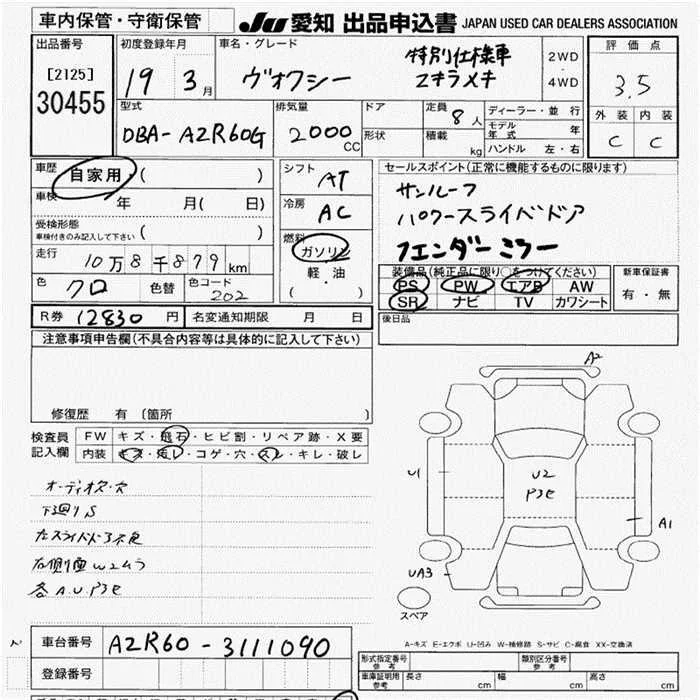 車内保管・守衛保管
JU 愛知 出品申込書 JAPAN USED CAR DEALERS ASSOCIATION
出品番号
[2125]
30455
初度登録年月
19 3月
車名・グレード
ヴオクシー
特別仕様車
エキラメキ
2WD
・
4WD
評価点
3.5
外装 内装
C C
型式
DBA-AZR60G
排気量
2000 CC
ドア
形状
定員 8人
積載 kg
ディーラー・並行
モデル年式 年
ハンドル 左・右
車歴
自家用・( )
車検 年 月( 日)
受検形態
車検付きのみ記入して下さい ( )
走行
10万8千879km
色 クロ 色替 色コード 202
シフト AT
冷房 AC
燃料
ガソリン
軽油
( ・ )
セールスポイント(正常に機能するものに限ります)
サンルーフ
パワースライドドア
フェンダーミラー
装備品(純正品に限り○をつけてください)
PS PW エアB AW
SR ナビ TV カワシート
新車保証書
有・無
R券 12830円 名変通知期限 月 日
後日品
注意事項申告欄(不具合内容等は具体的に記入して下さい)
修復歴 有 〔箇所 〕
検査員記入欄
FW キズ・飛石・ヒビ割・リペア跡・X要
内装 キズ・汚レ・コゲ・穴・スレ・キレ・破レ
オーディオス穴
下廻りS
右側面W2ムラ
各A.U.P3E
A2
U1
U2
P3E
A1
UA3
スペア
A-キズ E-エクボ U-凹み W-補修跡 S-サビ C-腐食 XX-交換済
車台番号 AZR60-3111090
登録番号
形式指定番号
参考
類別区分番号
参考
車庫証明用
参考
長さ cm 幅 cm 高さ cm